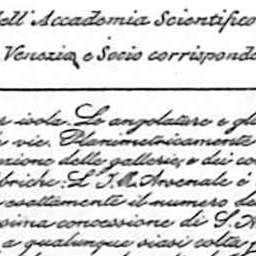 dell'Accademia Scientifico
Venezia, e Socio corrisponde
isola. Le angolature e gl
vie. Planimetricamente
zione delle gallerie, e dei co
briche: L'I. R. Arsenale è
esattamente il numero de
sima concessione di S. A
a qualunque siasi colta